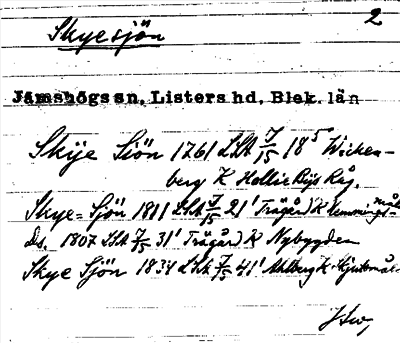 2
Skyesjön
Jämshögs sn, Listers hd, Blek. län
Skije Siön 1761 LSA 7/15 18⁵ Wicken-
berg K Hollie Bys Råg.
Skye=Sjön 1811 LSA 7/15 21¹ Trägård K Lemnings-mål
ds. 1807 LSA 7/15 31¹ Trägård K Nybygden
Skye Sjön 1834 LSA 7/15 41¹ Ahlberg K Skjutsmål-